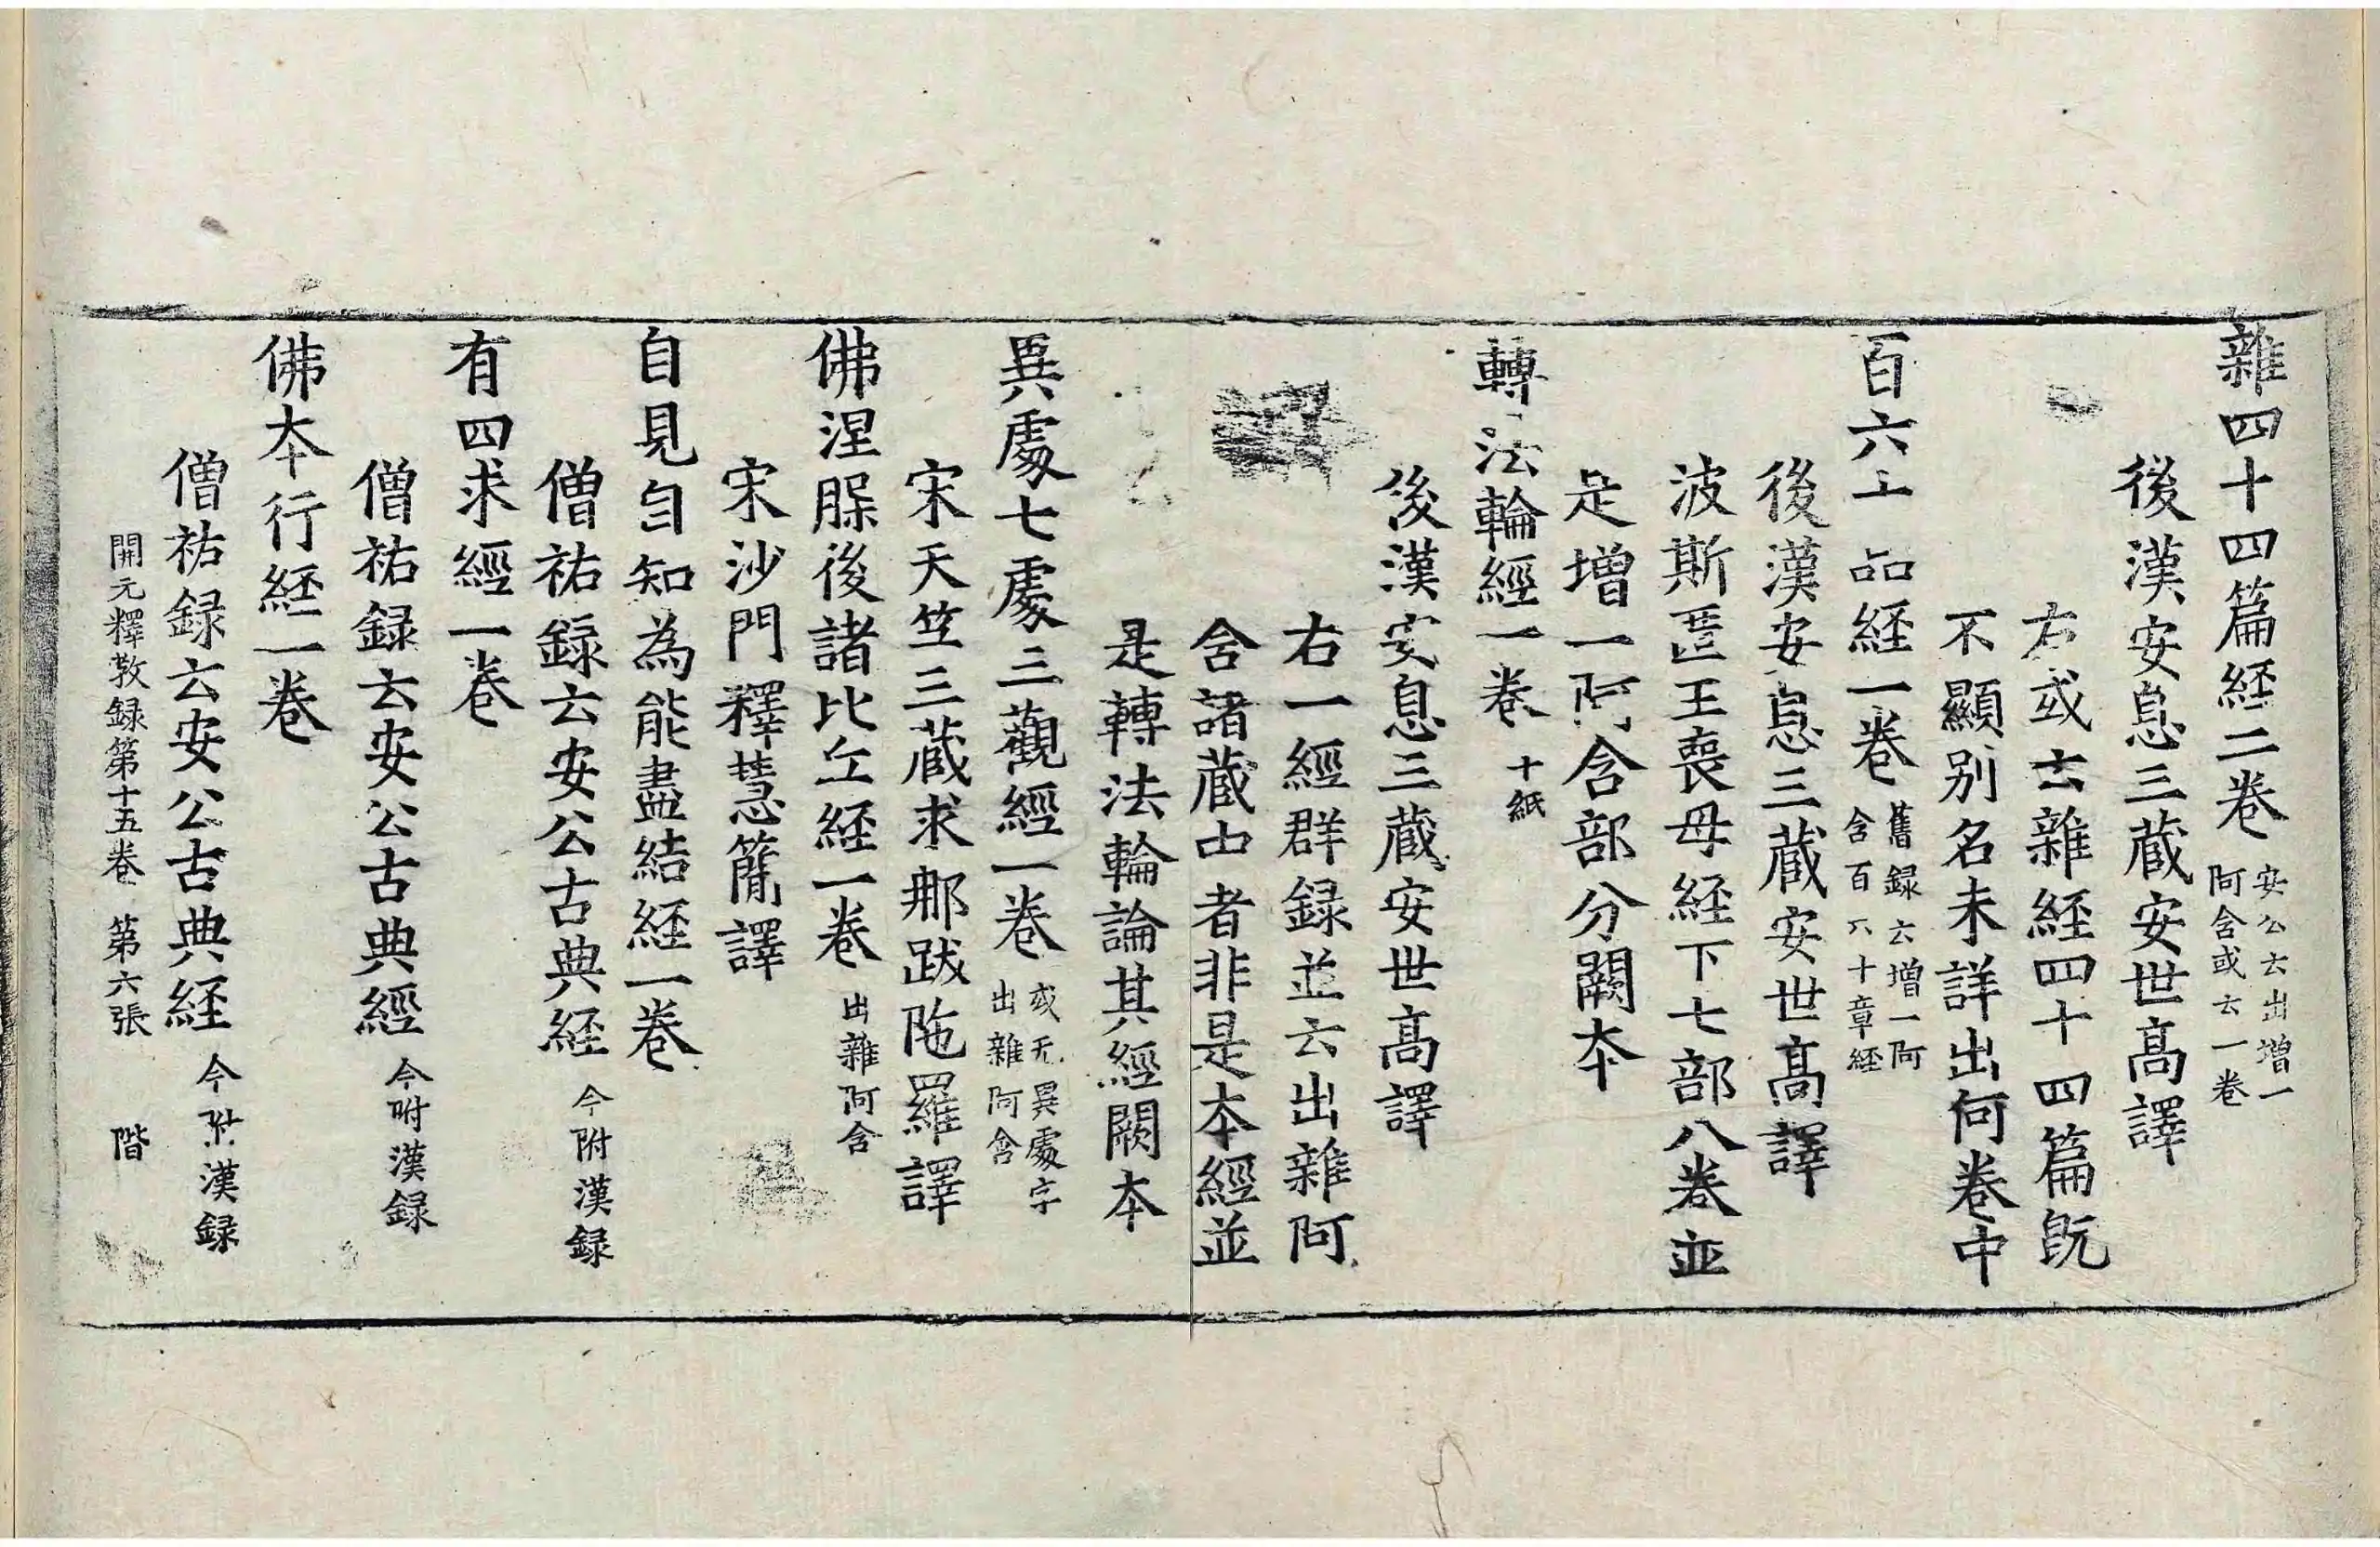 雜四十四篇経二卷 安公云出增一
阿含或云一卷
後漢安息三藏安世髙譯
右或云雜経四十四篇旣
不顯别名未詳出何卷中
百六十品経一卷 舊録云增一阿
含百六十章経
後漢安息三藏安世髙譯
波斯匿王喪母経下七部八卷並
是增一阿含部分闕本
轉法輪經一卷 十紙
後漢安息三藏安世髙譯
右一經群録並云出雜阿
含諸藏中者非是本經並
是轉法輪論其經闕本
異處七處三觀經一卷 或无異處字
出雜阿含
宋天竺三藏求那跋陁羅譯
佛涅槃後諸比丘経一卷 出雜阿含
宋沙門釋慧簡譯
自見自知為能盡結経一卷
僧祐録云安公古典経 今附漢録
有四求經一卷
僧祐録云安公古典經 今附漢録
佛本行経一卷
僧祐録云安公古典経 今附漢録
開元釋教録第十五卷 第六張 階